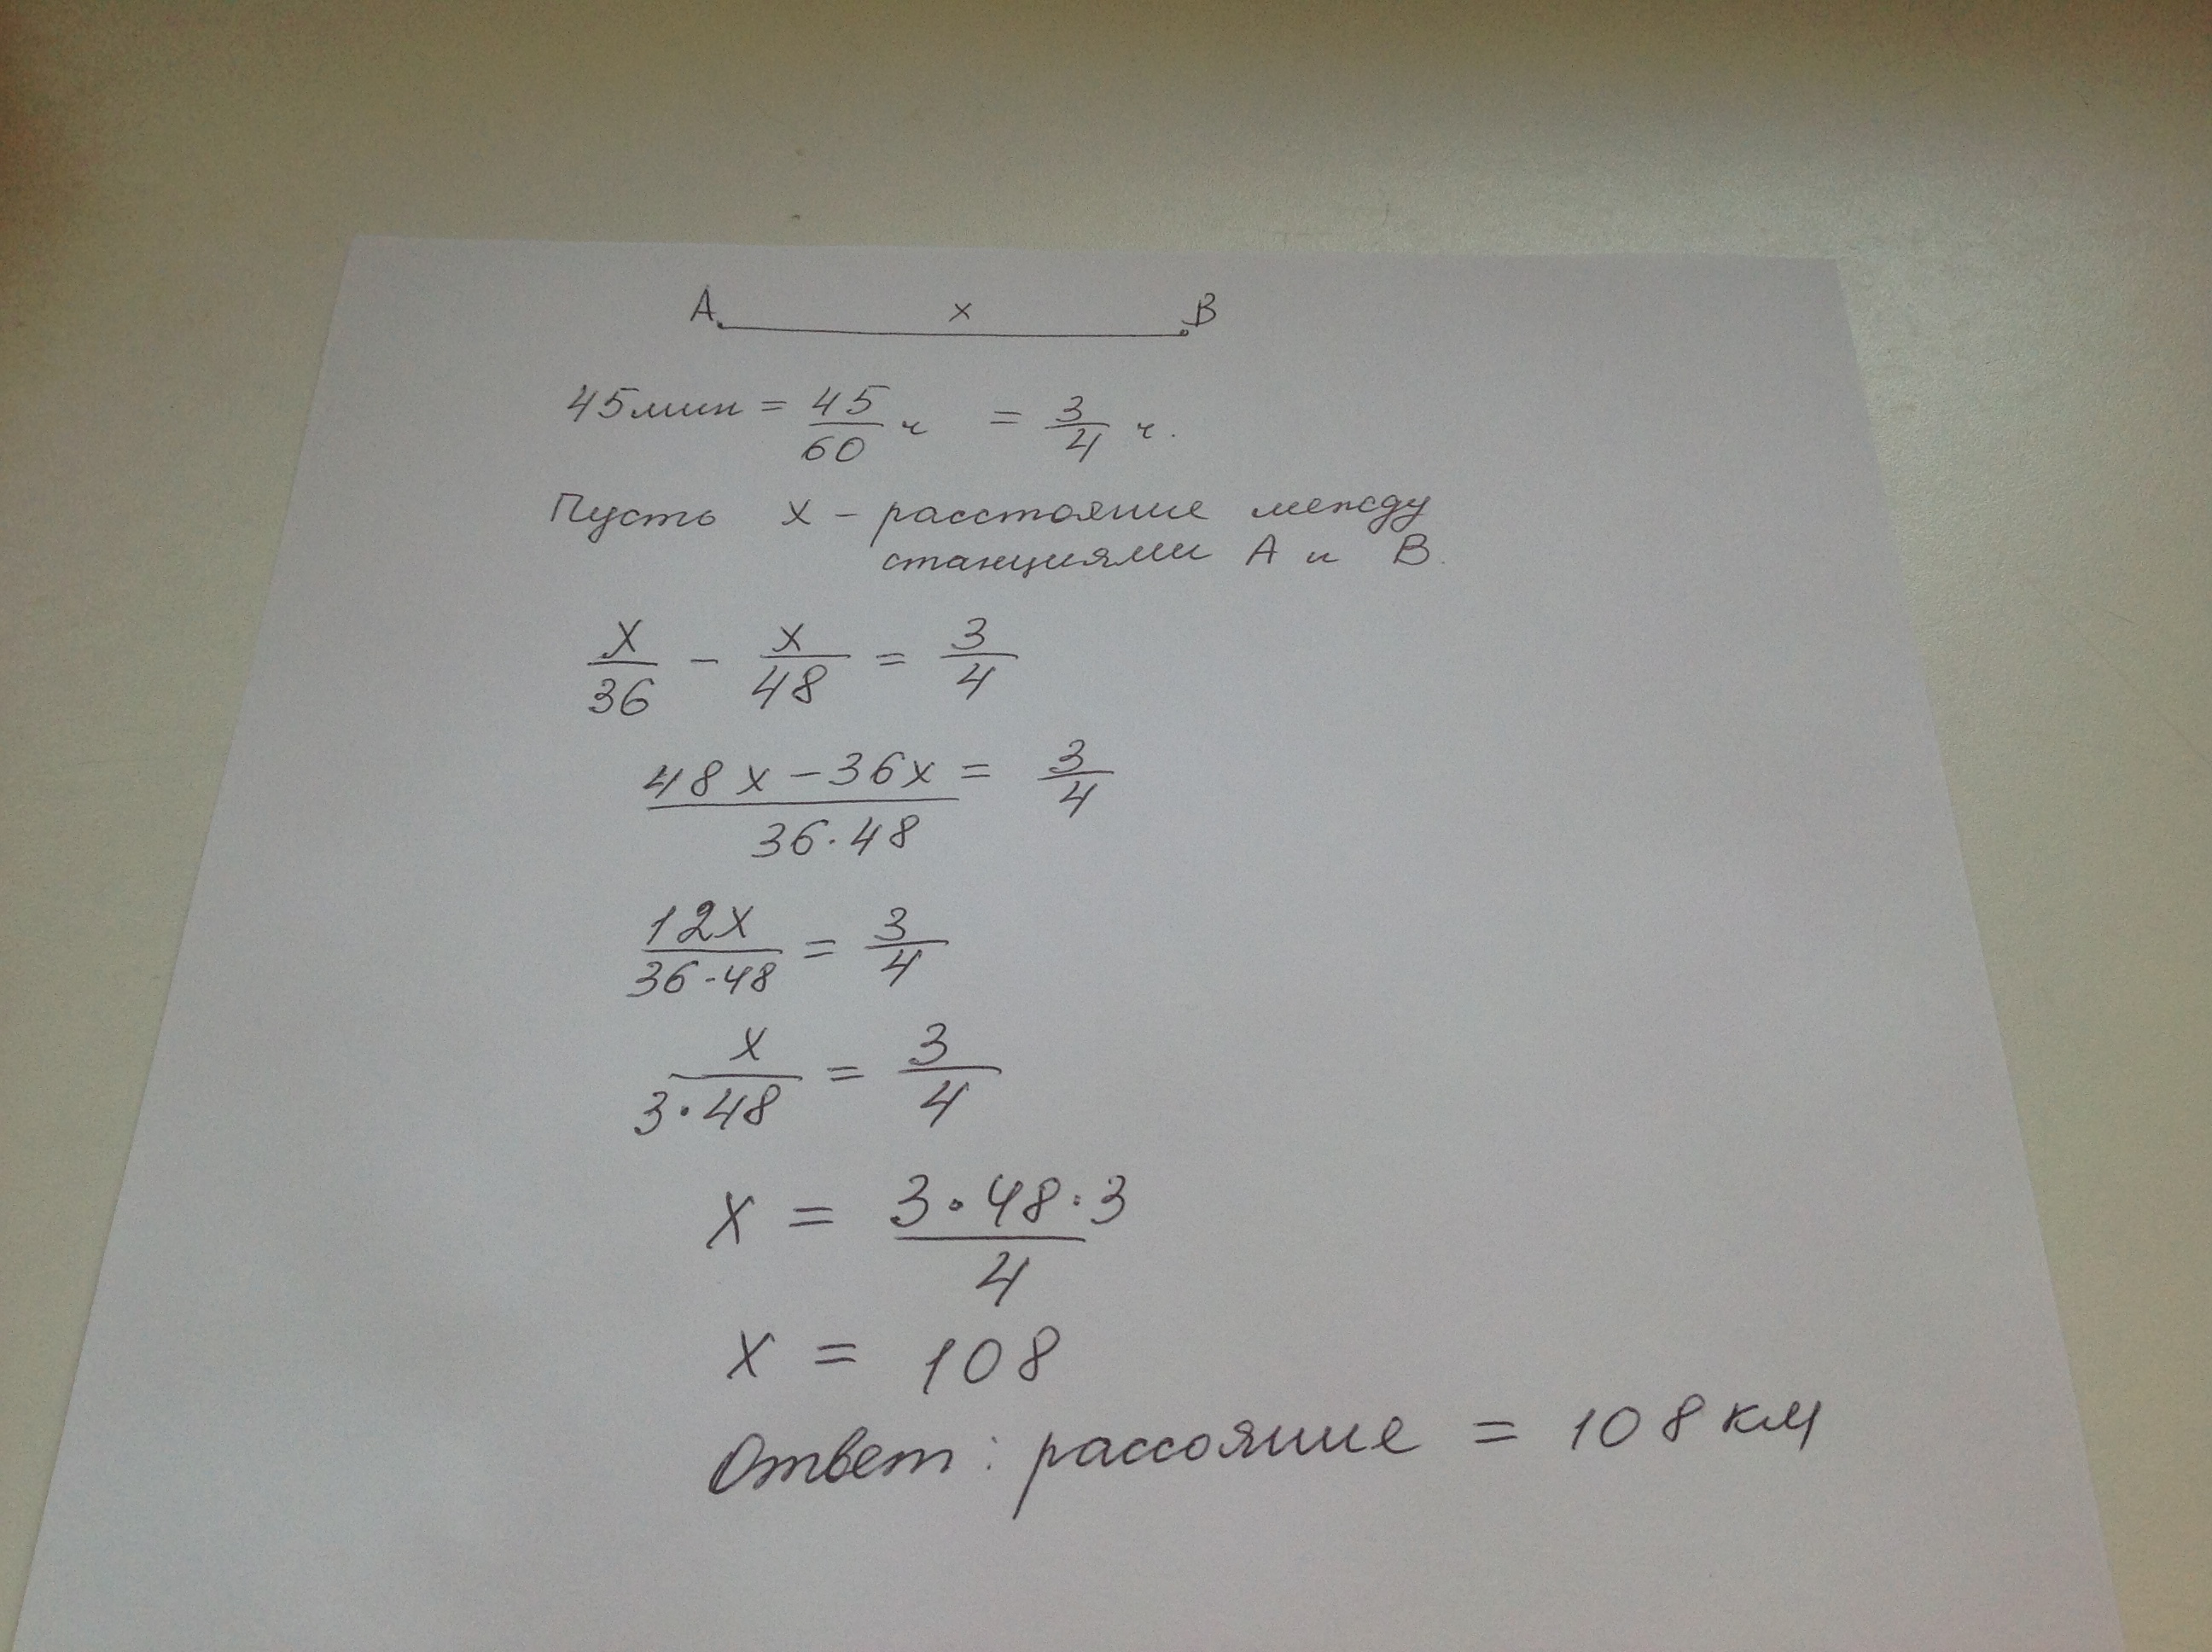 A x B
45мин = 45/60 ч = 3/4 ч.
Пусть x - расстояние между
станциями A и B.
x/36 - x/48 = 3/4
(48x - 36x)/(36·48) = 3/4
12x/(36·48) = 3/4
x/(3·48) = 3/4
x = (3·48·3)/4
x = 108
Ответ: рассояние = 108 км